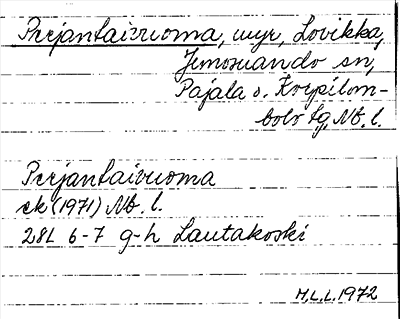 Perjantaivuoma, myr, Lovikka,
Junosuando sn,
Pajala o. Korpilom-
bolo tg, Nb. l.
Perjantaivuoma
ek (1971) Nb. l.
28L 6-7 g-h Lautakoski
M.L.L. 1972